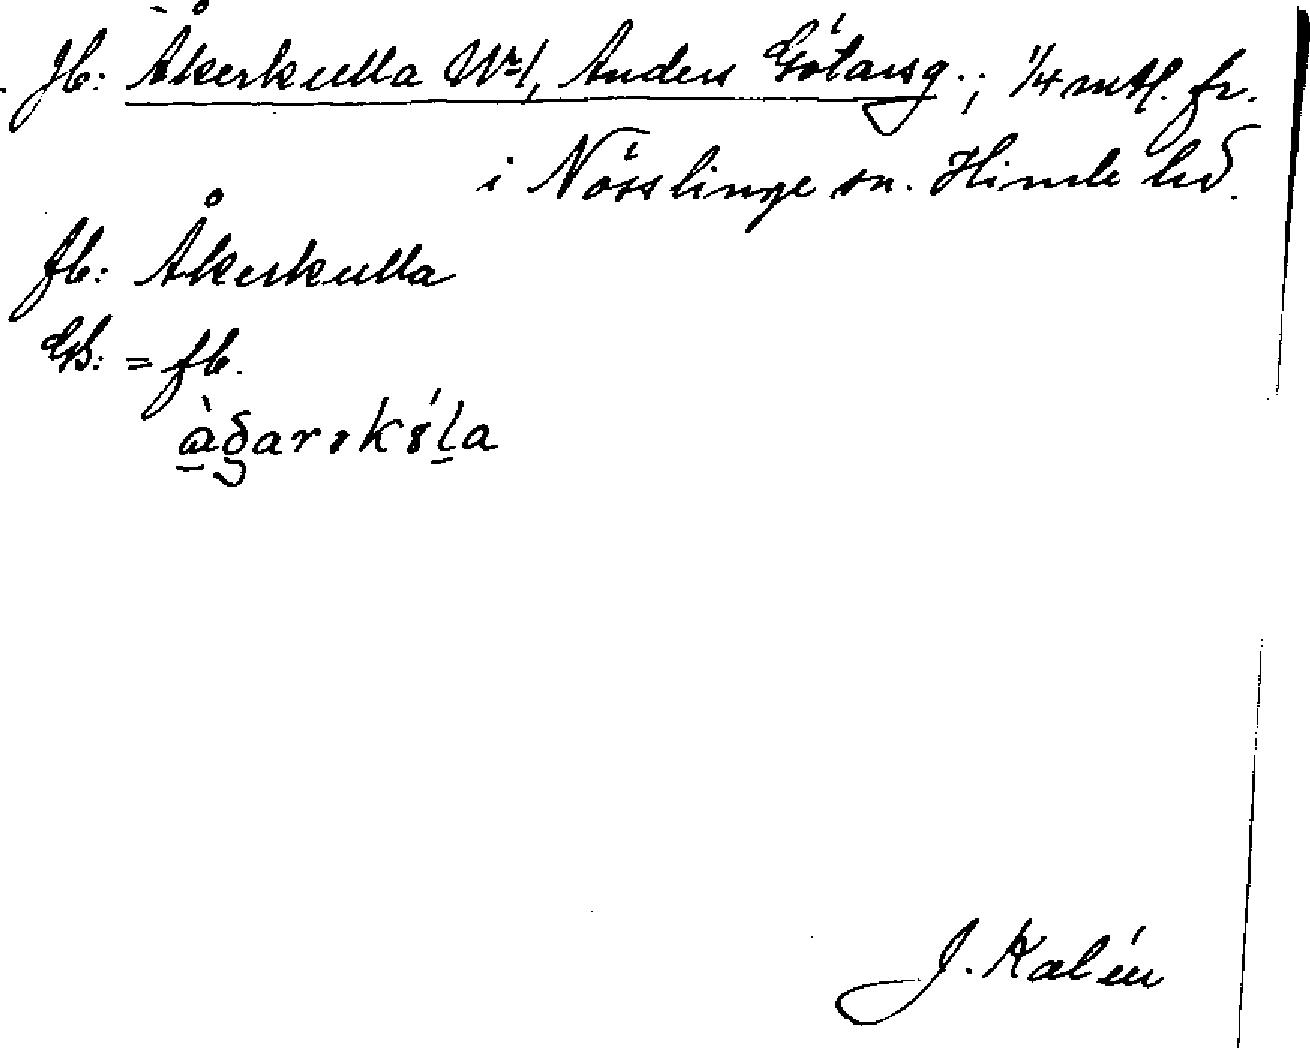 Jb: Åkerkulla Nº 1, Anders Götarsg.; 1/4 mtl. fr.
i Nösslinge sn. Himle hd.
fb: Åkerkulla
Gs: = fb.
J. Kalén